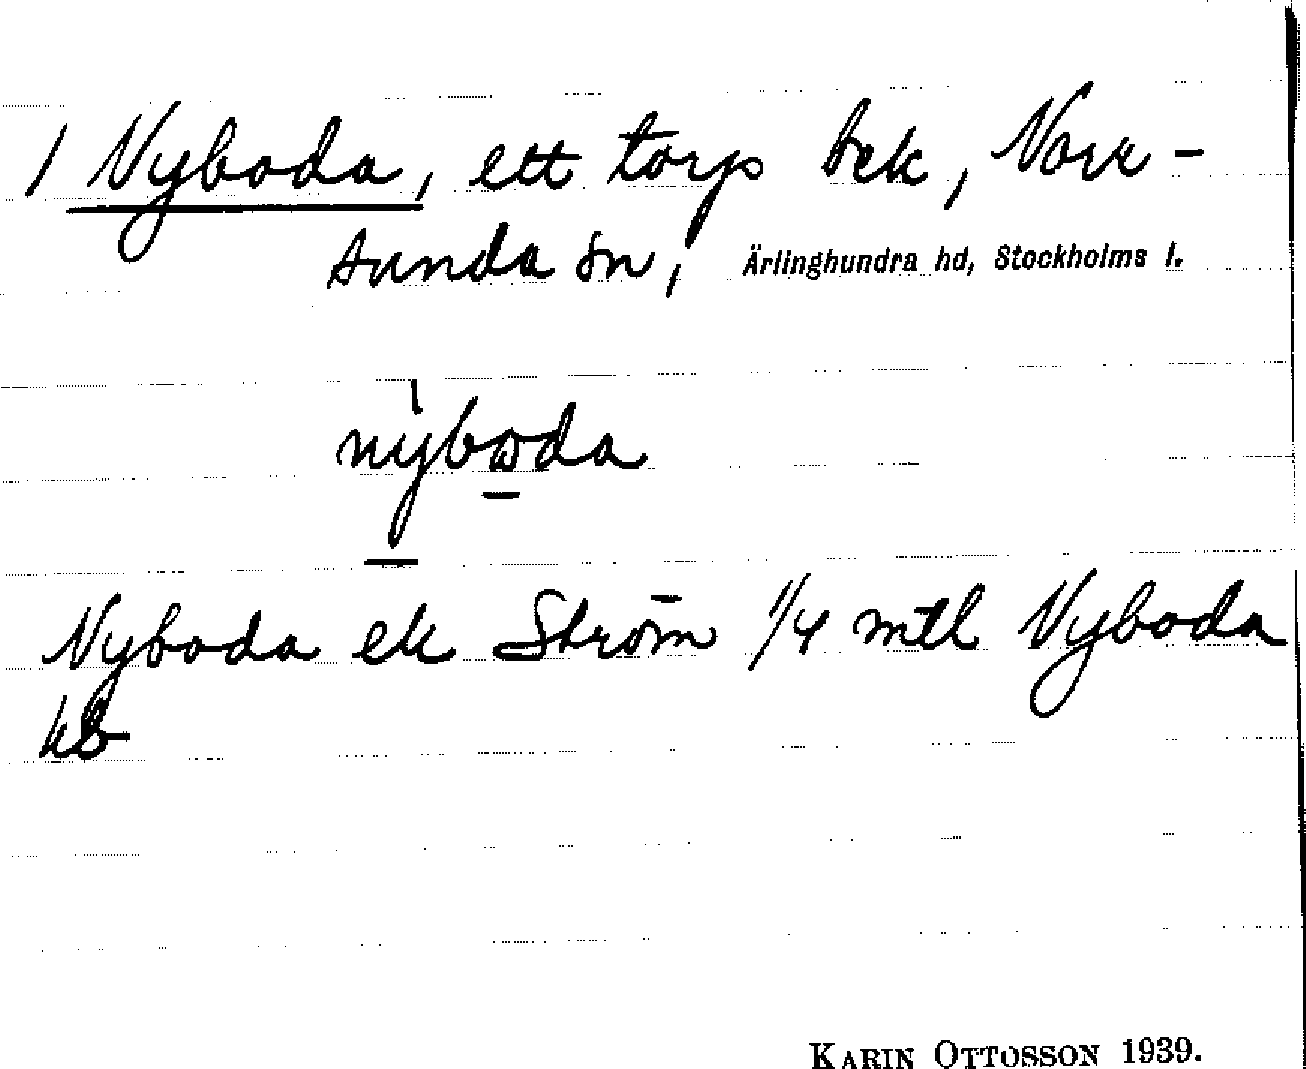 1 Nyboda, ett torp bek, Norr-
sunda sn, Ärlinghundra hd, Stockholms l.
nẁboda
Nyboda ek Ström 1/4 mtl Nyboda
kb
KARIN OTTOSSON 1939.